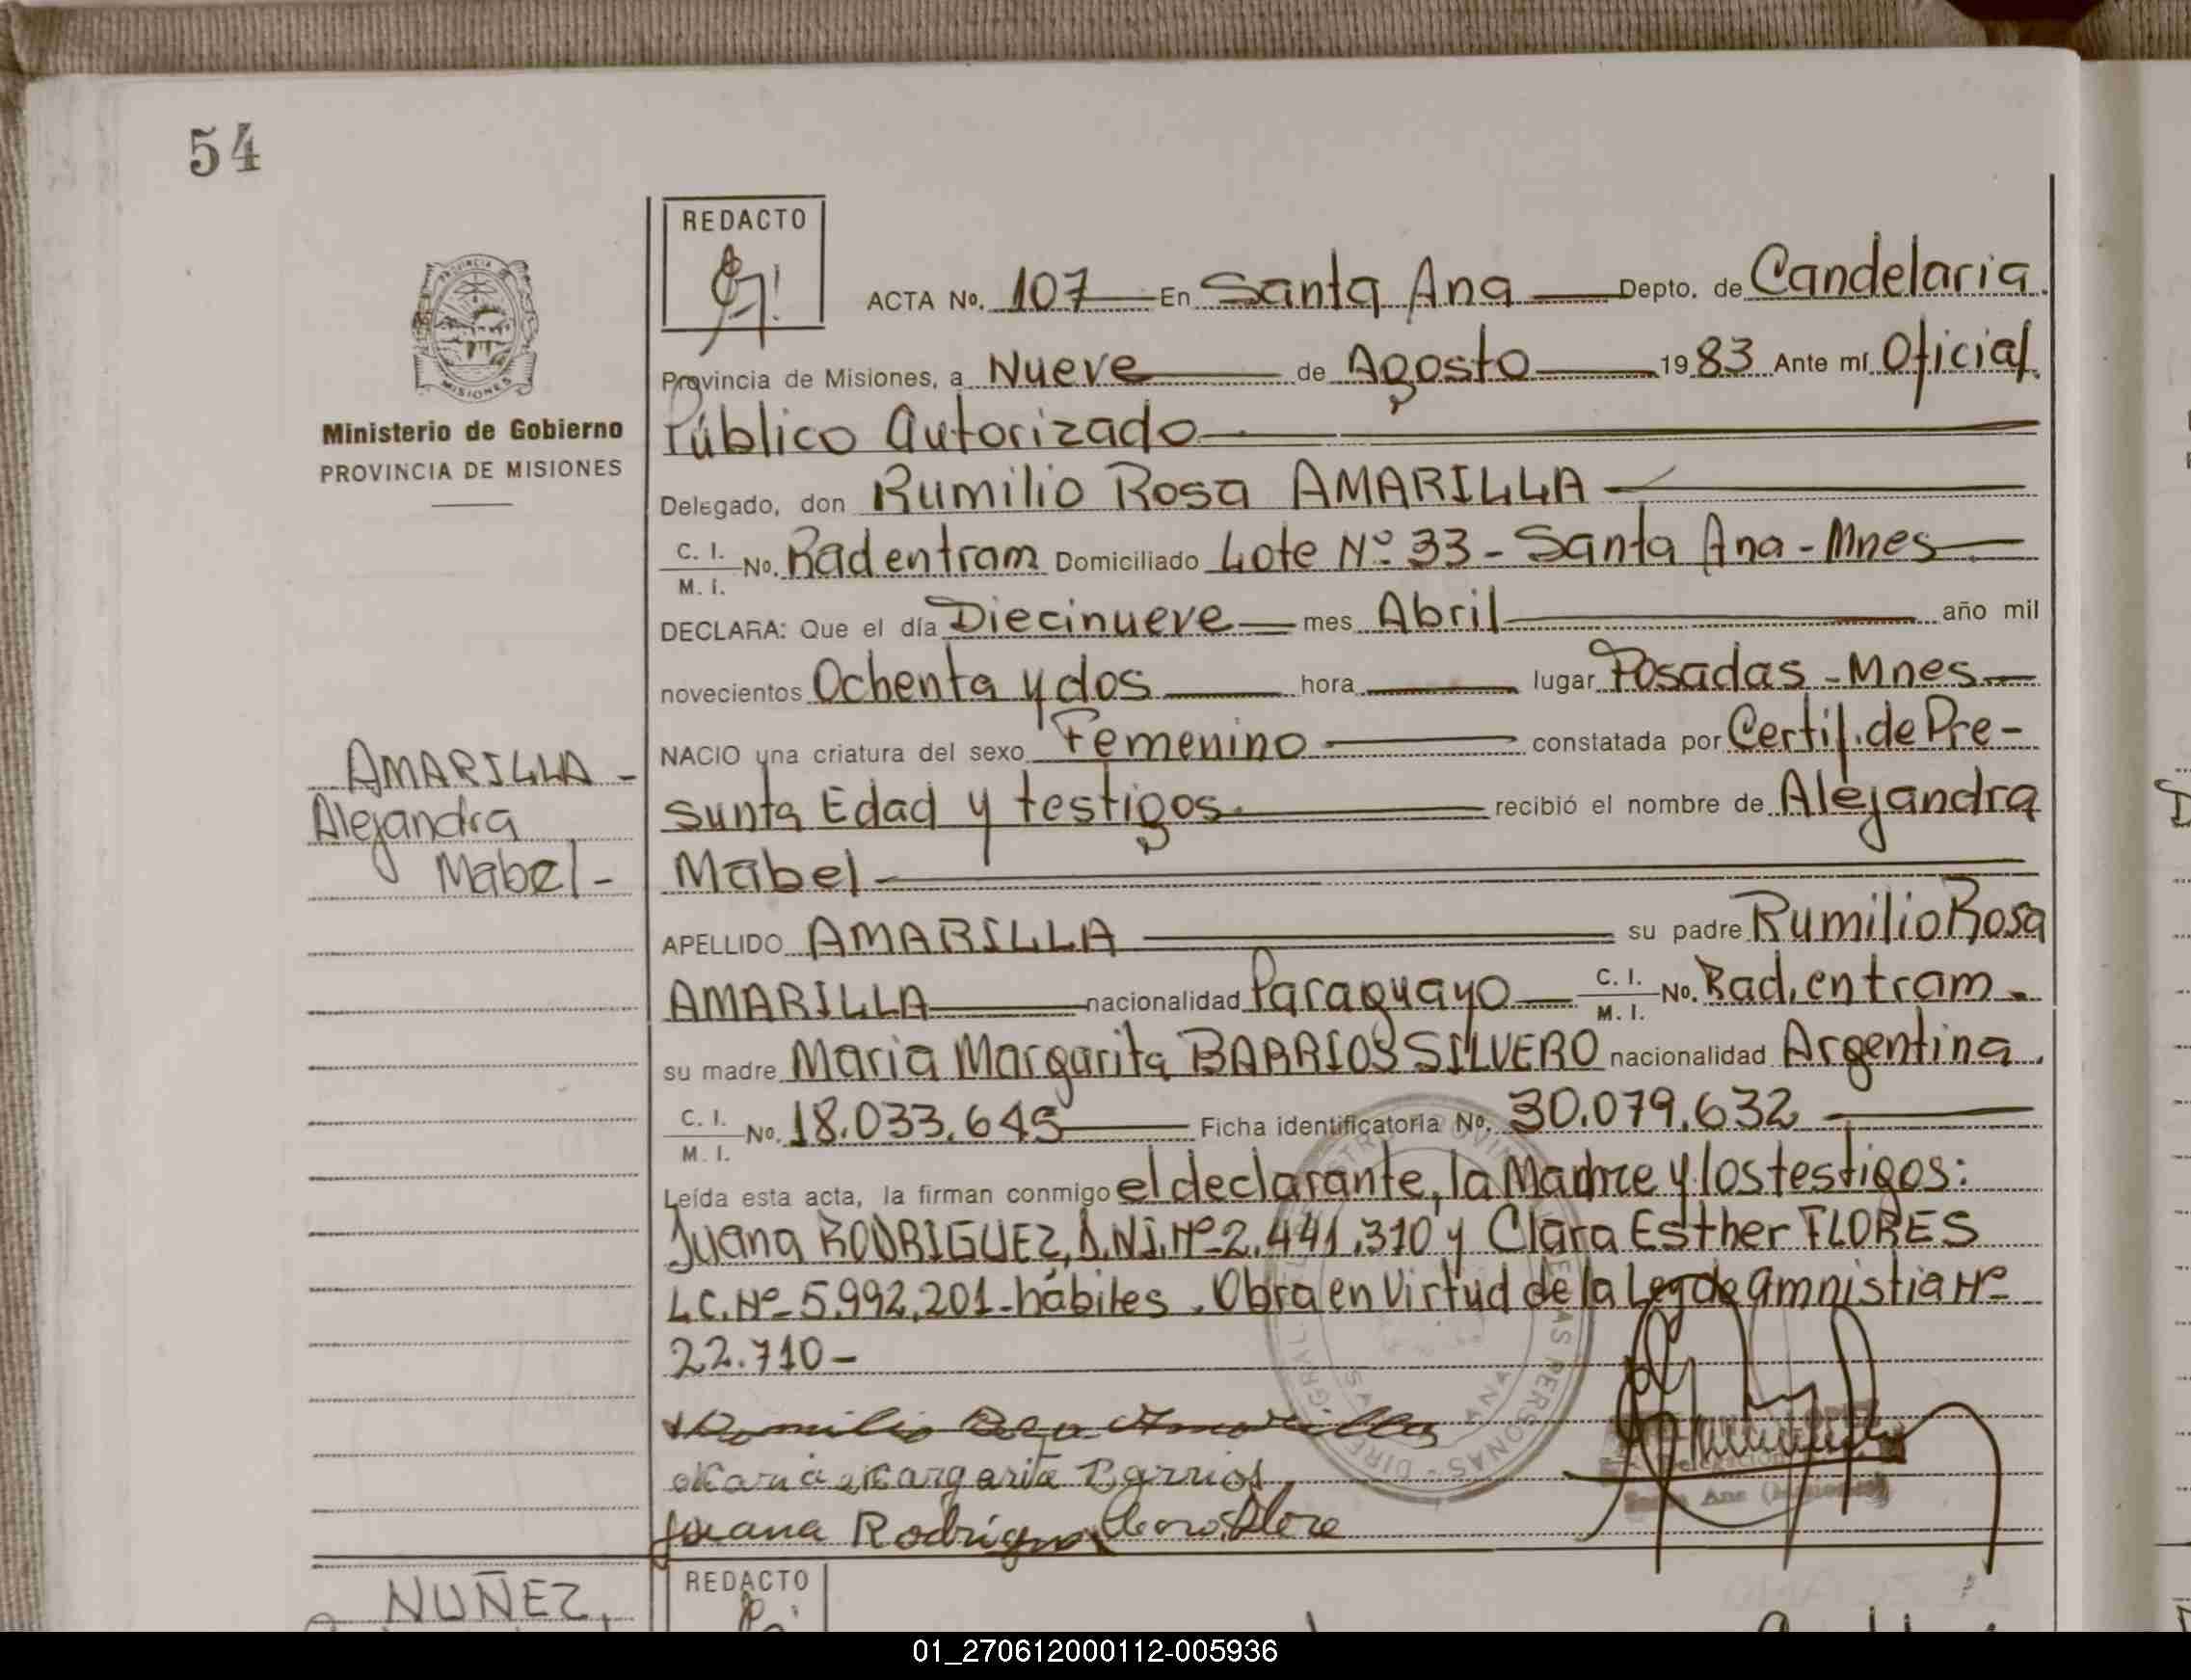 54
REDACTO
ACTA No. 107 En Santa Ana Depto. de Candelaria
PROVINCIA
MISIONES
Provincia de Misiones, a Nueve de Agosto 1983 Ante mí Oficial
Ministerio de Gobierno
PROVINCIA DE MISIONES
Público Autorizado
Delegado, don Rumilio Rosa AMARILLA
C. I. M. I. No. Rad entram Domiciliado Lote Nº 33 - Santa Ana - Mnes
DECLARA: Que el día Diecinueve mes Abril año mil
novecientos Ochenta y dos hora lugar Posadas - Mnes
NACIO una criatura del sexo Femenino constatada por Certif. de Pre-
AMARILLA -
Alejandra
Mabel -
sunta Edad y testigos recibió el nombre de Alejandra
Mabel
APELLIDO AMARILLA su padre Rumilio Rosa
AMARILLA nacionalidad Paraguayo C. I. M. I. No. Rad. entram.
su madre Maria Margarita BARRIOS SILVERO nacionalidad Argentina.
C. I. M. I. No. 18.033.645 Ficha identificatoria No. 30.079.632
Leída esta acta, la firman conmigo el declarante, la Madre y los testigos:
Juana RODRIGUEZ, D.N.I. Nº 2.441.310 y Clara Esther FLORES
L.C. Nº 5.992.201 - hábiles. Obra en Virtud de la Ley de amnistia Nº
22.710 -
Rumilio Rosa Amarilla
Maria Margarita Barrios
Juana Rodriguez Clara Flore
REDACTO
NUÑEZ,
01_270612000112-005936